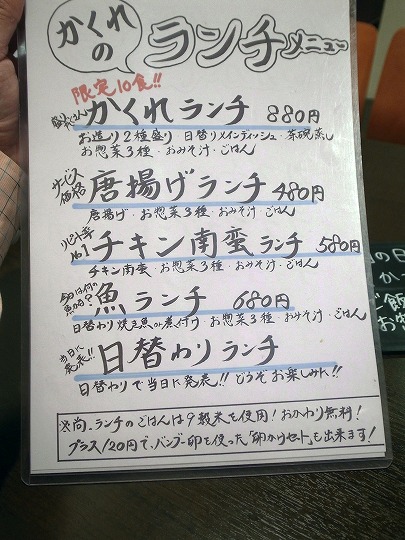 かくれの
ランチメニュー
限定10食!!
かくれランチ 880円
お造り2種盛り・日替りメインディッシュ・茶碗蒸し
お惣菜3種・おみそ汁・ごはん
サービス価格
唐揚げランチ 480円
唐揚げ・お惣菜3種・おみそ汁・ごはん
リピート率No1
チキン南蛮ランチ 580円
チキン南蛮・お惣菜3種・おみそ汁・ごはん
今日は何の魚かな?
魚ランチ 680円
日替わり焼き魚or煮付け・お惣菜3種・おみそ汁・ごはん
当日に発表!!
日替わりランチ
日替わりで当日に発表!!どうぞお楽しみに!!
※尚、ランチのごはんは9穀米を使用!おかわり無料!
プラス120円で、バンブー卵を使った「卵かけセット」も出来ます!